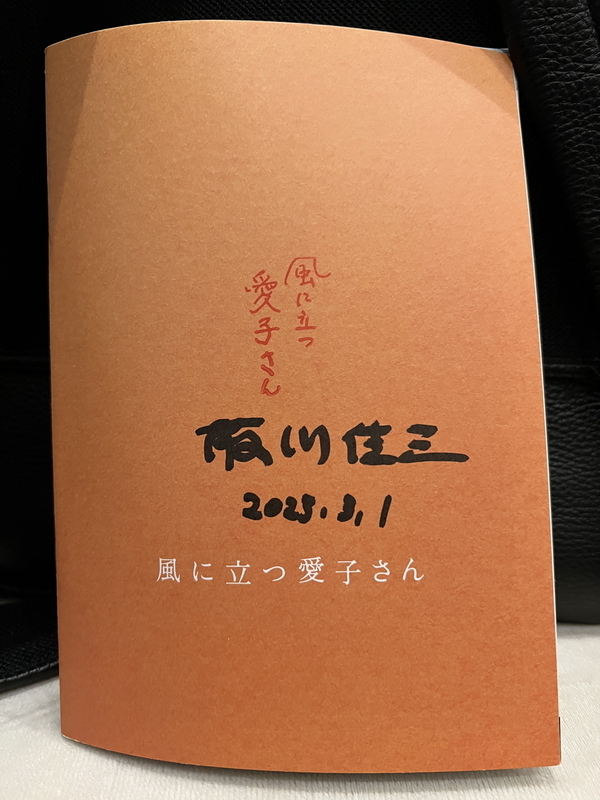 風に立つ
愛子さん
阪川佳三
2025.3.1
風に立つ愛子さん